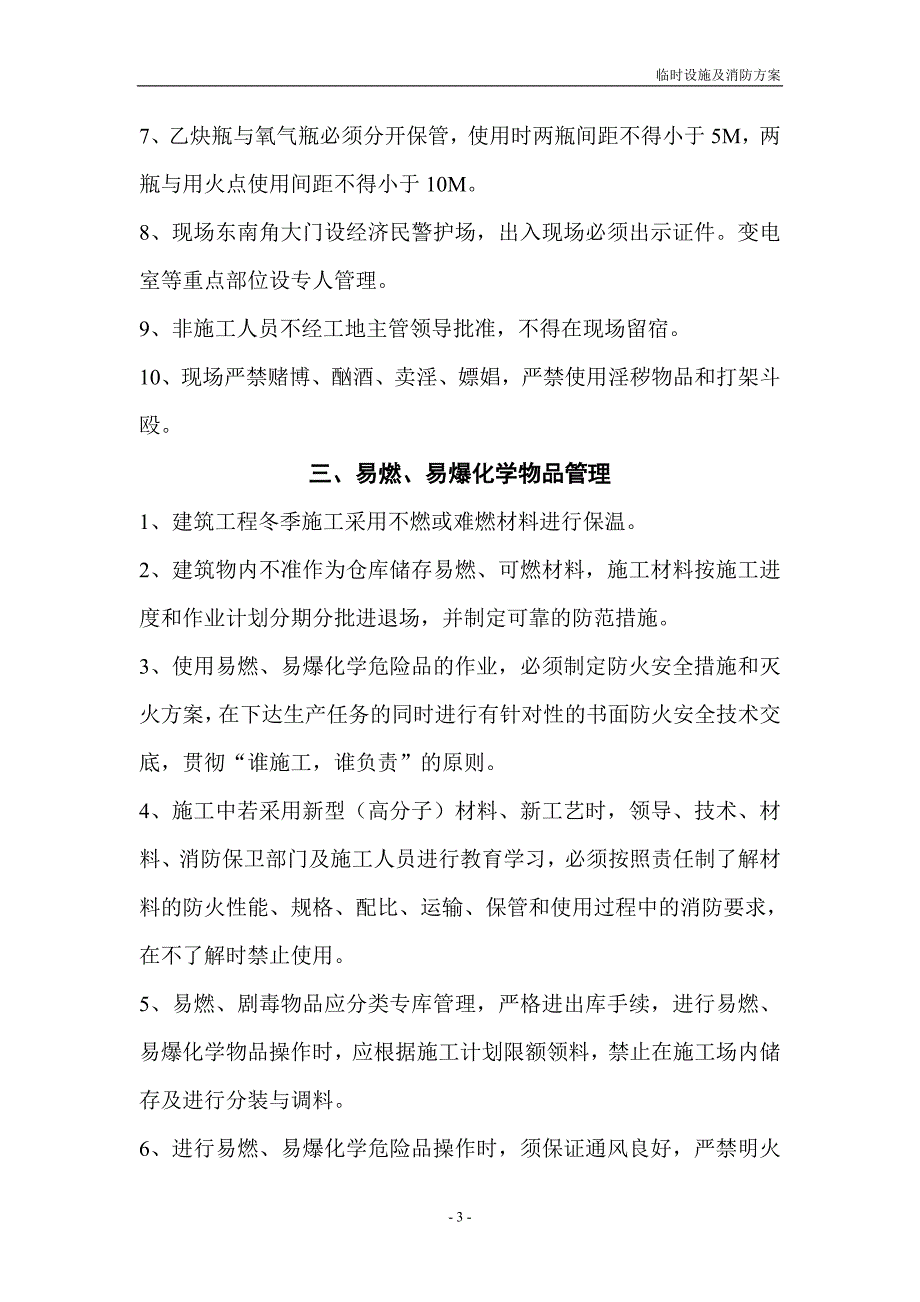 临时设施及消防方案
7、乙炔瓶与氧气瓶必须分开保管，使用时两瓶间距不得小于 5M，两
瓶与用火点使用间距不得小于 10M。
8、现场东南角大门设经济民警护场，出入现场必须出示证件。变电
室等重点部位设专人管理。
9、非施工人员不经工地主管领导批准，不得在现场留宿。
10、现场严禁赌博、酗酒、卖淫、嫖娼，严禁使用淫秽物品和打架斗
殴。
三、易燃、易爆化学物品管理
1、建筑工程冬季施工采用不燃或难燃材料进行保温。
2、建筑物内不准作为仓库储存易燃、可燃材料，施工材料按施工进
度和作业计划分期分批进退场，并制定可靠的防范措施。
3、使用易燃、易爆化学危险品的作业，必须制定防火安全措施和灭
火方案，在下达生产任务的同时进行有针对性的书面防火安全技术交
底，贯彻“谁施工，谁负责”的原则。
4、施工中若采用新型（高分子）材料、新工艺时，领导、技术、材
料、消防保卫部门及施工人员进行教育学习，必须按照责任制了解材
料的防火性能、规格、配比、运输、保管和使用过程中的消防要求，
在不了解时禁止使用。
5、易燃、剧毒物品应分类专库管理，严格进出库手续，进行易燃、
易爆化学物品操作时，应根据施工计划限额领料，禁止在施工场内储
存及进行分装与调料。
6、进行易燃、易爆化学危险品操作时，须保证通风良好，严禁明火
- 3 -